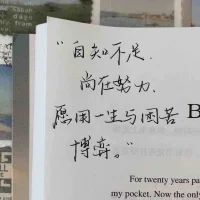 “自知不足，
尚在努力，
愿用一生与困苦
博弈。”
B
For twenty years pa
my pocket. Now the only